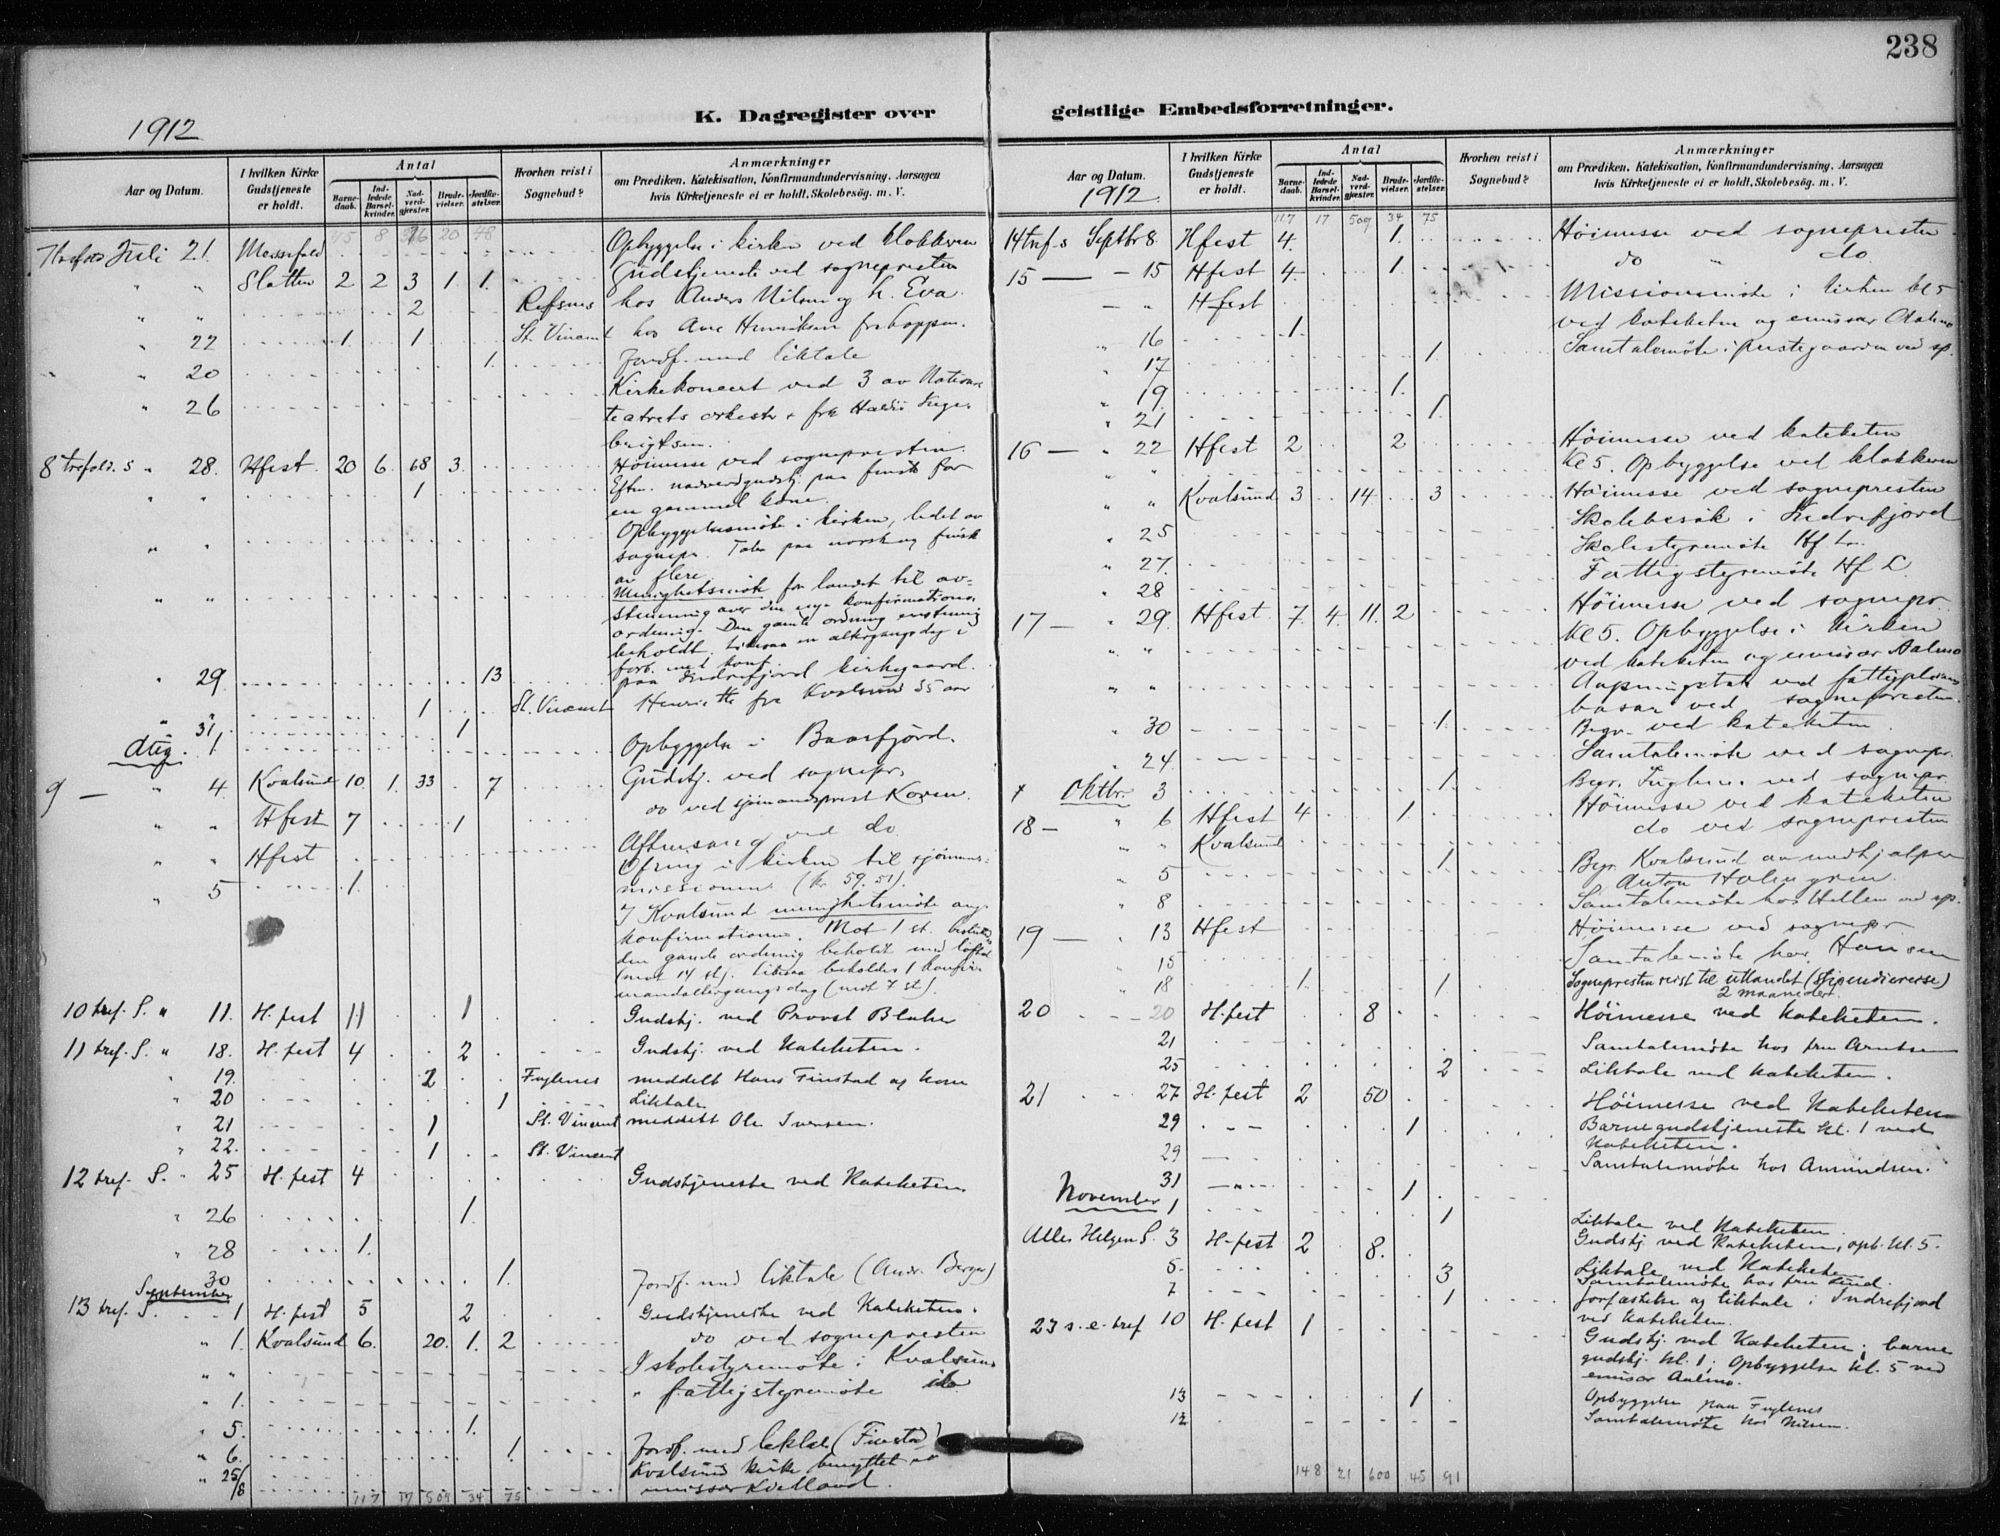 238
K. Dagregister over geistlige Embedsforretninger.
1912
Aar og Datum.
I hvilken Kirke Gudstjeneste er holdt.
Antal
Barnedaab.
Indledede Barselkvinder.
Nadverdgjæster.
Brudevielser.
Jordfæstelser.
Hvorhen reist i Sognebud?
Anmærkninger
om Prædiken, Katekisation, Konfirmandundervisning, Aarsagen
hvis Kirketjeneste ei er holdt, Skolebesøg. m. V.
Juli 21. Opbyggelse i kirken ved klokkeren
" " Slotten 2 2 3 1. 1. Gudstjeneste ved sognepresten
" " 2 Refsnes hos Anders Nilsen og h. Eva.
" 22 1. 1. St. Vincent hos Ane Henriksen fra
" 20 1. Jordf. med liktale
" 26 Kirkekoncert ved 3 av National
teatrets orkester +
brigtsen.
8 trefold. s " 28. Hfest. 20 6. 68 3. Høimesse ved sognepresten.
" " 1 Eftm. nadverdgudstj. paa finsk for
en gammel kone.
" " Opbyggelsesmøte i kirken, ledet av
sognepr. Taler paa norsk og finsk
av flere.
" " Menighetsmøte for landet til av-
stemning over den nye konfirmations
ordning. Den gamle ordning enstemmig
beholdt. Likesaa en altergangsdag i
forb. med konf.
" 29 13 paa Indrefjord kirkegaard.
" " 1 St. Vincent Henriette fra Kvalsund 55 aar
31. 1
Aug. 1 Opbyggelse i Baasfjord.
9 — " 4. Kvalsund 10. 1. 33 7 Gudstj. ved sognepr.
" " Hfest 7 1 do ved sjømandsprest Koren.
" " Hfest Aftensang ved do.
" 5 1. Ofring i kirken til sjømans-
missionen (kr. 59.51).
I Kvalsund menighetsmøte ang.
konfirmationen. Mot 1 st.
den gamle ordning beholdt med
(mot 14 st). Likesaa beholdes 1 konfir-
mandaltergangsdag (mot 7 st).
10 tref. S. " 11. H. fest 11 1 Gudstj. ved Provst Blaker
11 tref. S. " 18. H. fest 4 2 Gudstj. ved Kateketen.
" 19. 2 Fuglenes meddelt Hans Finstad og kone
" 20 1 Liktale
" 21 1 St. Vincent meddelt Ole Iversen.
" 22. 1 St. Vincent
12 tref. S. " 25 H. fest 4 Gudstjeneste ved Kateketen
" 26 1.
" 28 1.
30 1. Jordf. med liktale (Andr. Berger)
September
13 tref. S. 1 H. fest 5 2 Gudstjeneste ved Kateketen.
" 1. Kvalsund 6. 20. 1. 2 do ved sognepresten
" " I skolestyremøte i Kvalsund
" 1. " fattigstyremøte do
" 5. 1.
" 6. 1. Jordf. med liktale (Finstad)
" 25/8 Kvalsund kirke benyttet av
emissær Kvelland.
117 17 509 34 75
Aar og Datum.
1912
I hvilken Kirke Gudstjeneste er holdt.
Antal
Barnedaab.
Indledede Barselkvinder.
Nadverdgjæster.
Brudevielser.
Jordfæstelser.
Hvorhen reist i Sognebud?
Anmærkninger
om Prædiken, Katekisation, Konfirmandundervisning, Aarsagen
hvis Kirketjeneste ei er holdt, Skolebesøg. m. V.
117 17 509 34 75
14 tref. s Septbr 8. Hfest 4. 1. Høimesse ved sognepresten
15 — — 15 Hfest 4. 1. do " do.
— " Hfest Missionsmøte i kirken kl 5
ved kateketen og emissær Aalmo
" 16 1. Samtalemøte i prestegaarden ved sp.
" 17 1
" 19. 1.
" 21 1.
16 — " 22 Hfest 2 2 Høimesse ved kateketen
" Kl 5. Opbyggelse ved klokkeren
" " Kvalsund 3 14 3 Høimesse ved sognepresten
" 25 Skolebesøk i Indrefjord
" 27. Skolestyremøte Hf. L.
" 28 Fattigstyremøte Hf L.
17 — " 29. Hfest 7. 4. 11. 2 Høimesse ved sognepr.
" " Kl 5. Opbyggelse i kirken
ved kateketen og emissær Aalmo
" " Aapningstale ved fattigpleiens
basar ved sognepresten
" 30 1. Begr. ved kateketen.
" 24. Samtalemøte ved sognepr.
+ Oktbr. 3 1. Begr. Fuglenes ved sognepr.
18 — " 6 Hfest 4 1. Høimesse ved kateketen
" " Kvalsund do ved sognepresten
" 5 1 Begr. Kvalsund av medhjælper
Anton Holmgren.
" 8 Samtalemøte hos Hellem ved sp.
19 — " 13 Hfest Høimesse ved sognepr.
" 15 Samtalemøte hos Hansen
" 18 1. 1 Sognepresten reist til utlandet (stipendiereise)
2 maaneder.
20 — 20 H. fest 8 Høimesse ved Kateketen.
21 Samtalemøte hos fru Arntsen
25 2 Liktale ved Kateketen.
21 27 H. fest 2 50 Høimesse ved Kateketen
29 1 Barnegudstjeneste kl. 1 ved
Kateketen.
29 Samtalemøte hos Amundsen.
31 1
November 1 1 Liktale ved Kateketen
Alle Helgen S. 3 H. fest 2 8. Gudstj. ved Kateketen, opb. kl. 5.
5. 3 Liktale ved Kateketen
Samtalemøte hos fru Lund.
7 1 Jorfæstelse og liktale i Indrefjord
ved Kateketen.
23 s. e. tref 10 H. fest 1 Gudstj. ved Kateketen; barne
gudstj. kl. 1; Opbyggelse kl. 5 ved
emisær Aalmo.
13 1 Opbyggelse paa Fuglenes
12 Samtalemøte hos Nilsen.
148 21 600 45 91